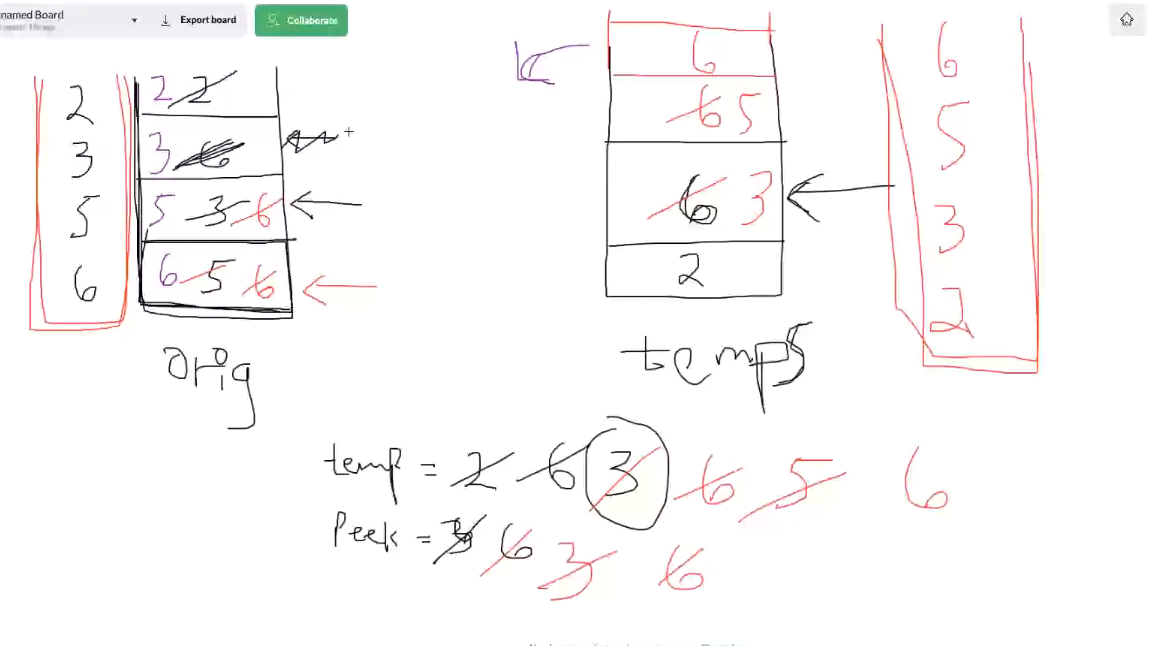 named Board
Export board
Collaborate
2
3
5
6
2 2
3 6
5 3 6
6 5 6
orig
6
6 5
6 3
2
temps
6
5
3
2
temp = 2 6 3 6 5 6
Peek = 3 6 3 6